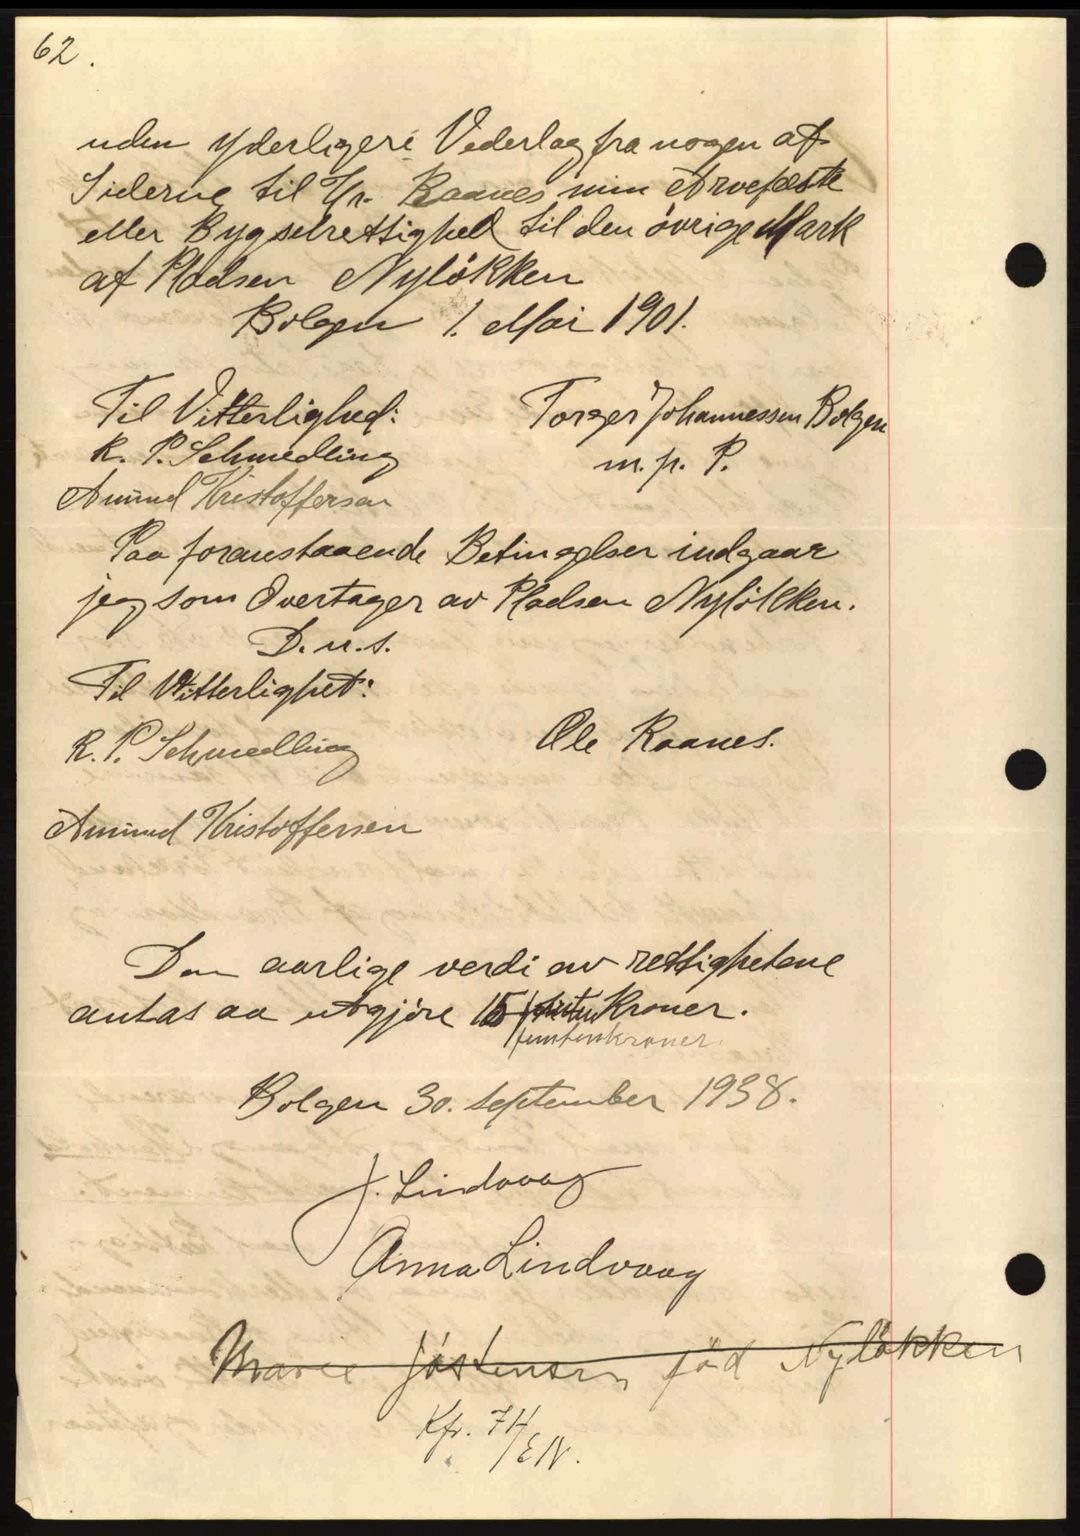 62.
uden yderligere Vederlag fra nogen af
Siderne til Hr. Raanes min Arvefæste
eller Bygselrettighed til den övrige Mark
af Pladsen Nylökken
Bolgen 1. Mai 1901.
Til Vitterlighed: Torger Johannessen Bolgen
R. P. Schmedling m. p. P.
Amund Kristoffersen
Paa foranstaaende Betingelser indgaar
jeg som Overtager av Pladsen Nylökken.
D. u. s.
Til Vitterlighet:
R. P. Schmedling Ole Raanes.
Amund Kristoffersen
Den aarlige verdi av rettighetene
antas aa utgjöre 15 femten Kroner.
femtenkroner.
Bolgen 30. september 1938.
J. Lindvaag
Anna Lindvaag
Marie Jöstensen föd Nylökken
Kfr. 74
/EN.